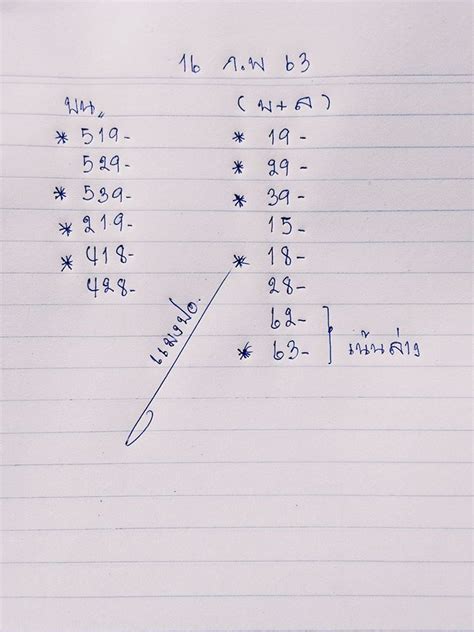 16 ก.พ 63
บน.
(บ+ล)
* 519-
529-
* 539-
* 219-
* 418-
428-
* 19-
* 29-
* 39-
15-
* 18-
28-
62-
* 63-
เน้นล่าง
แมงปอ.